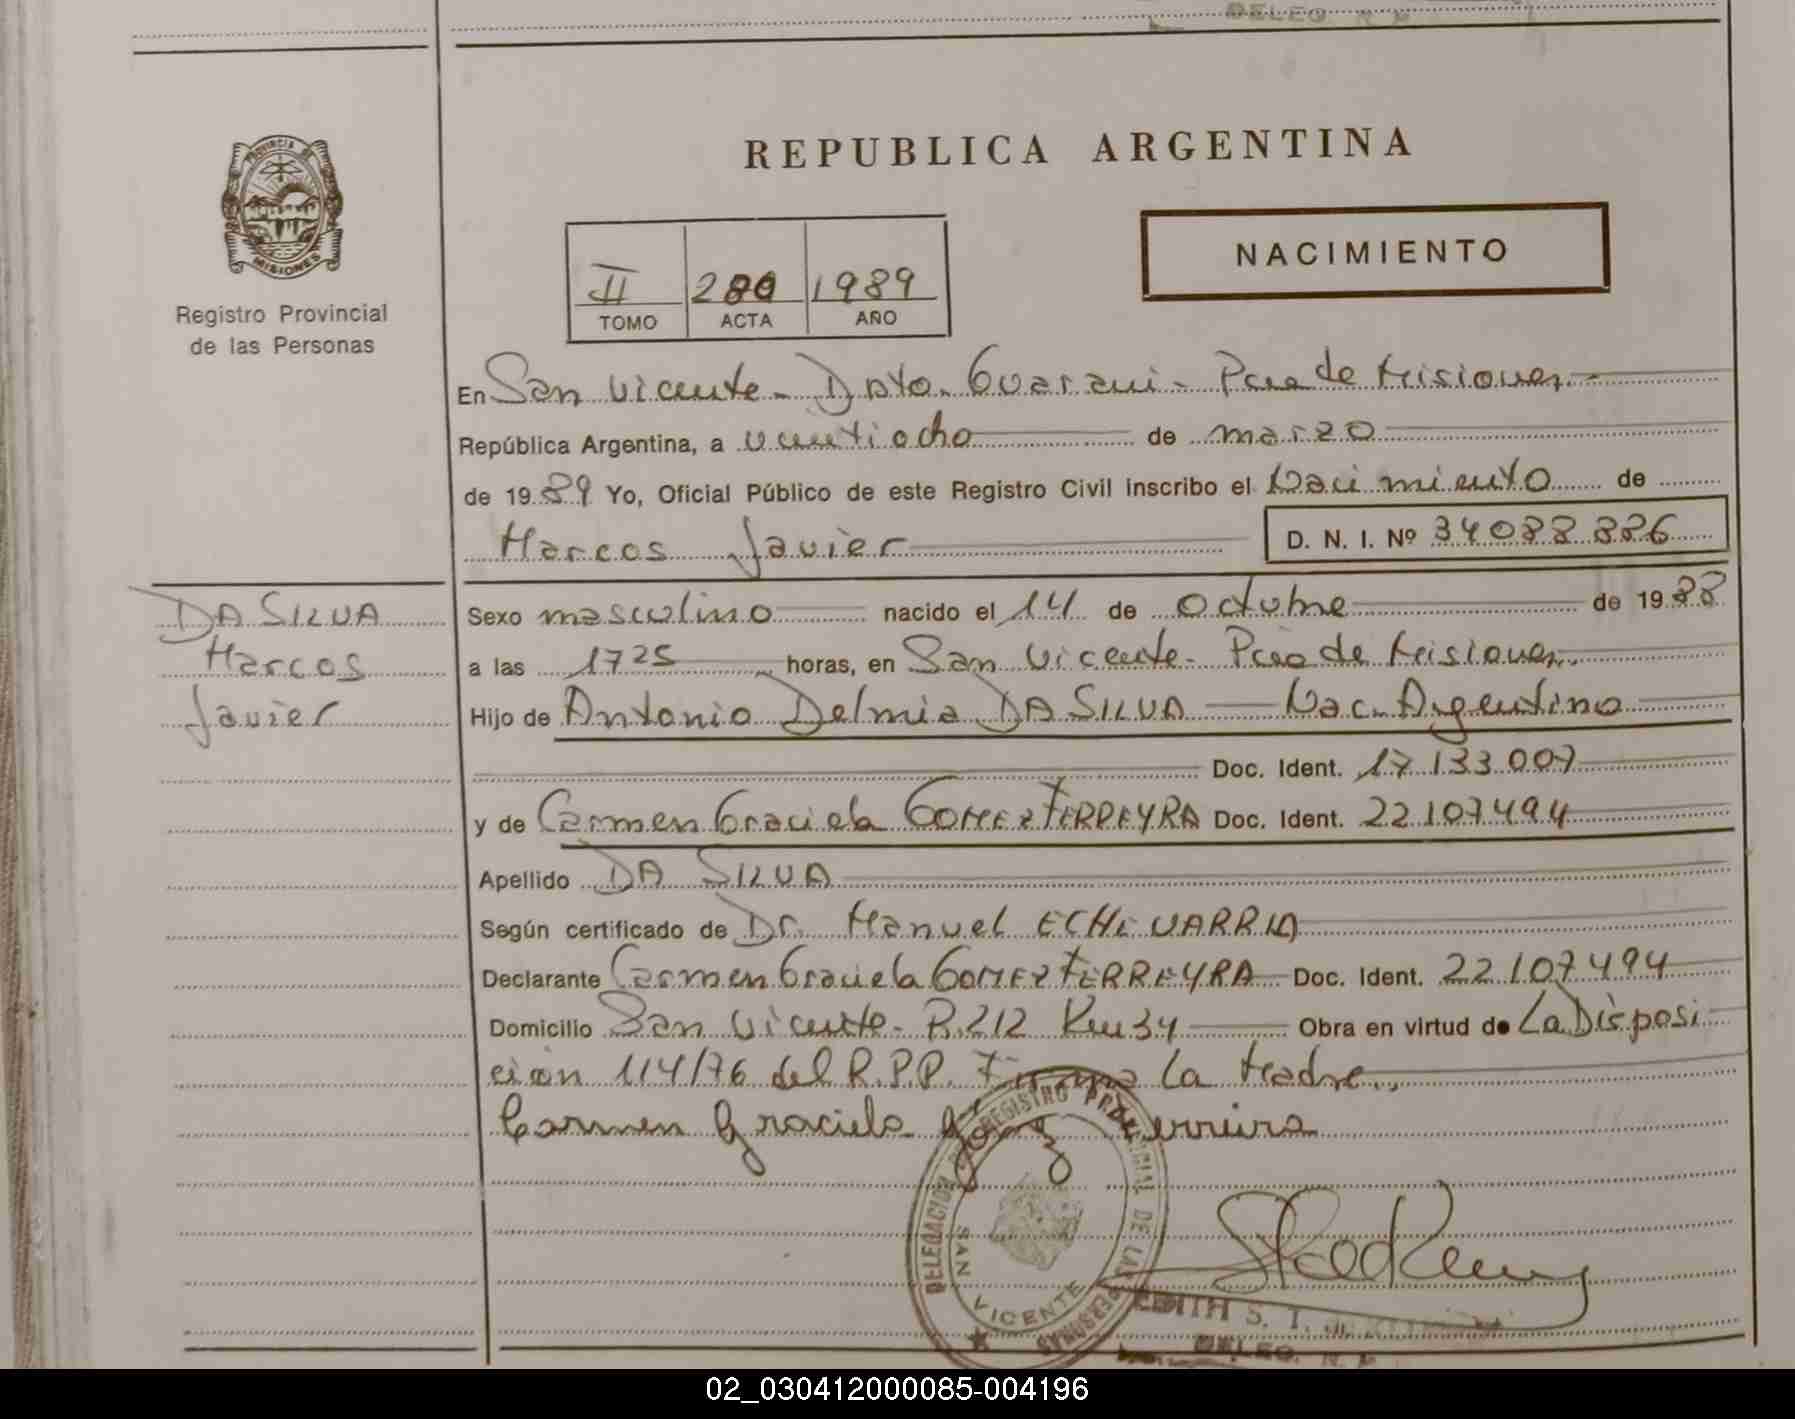 DELEG. R. P.
PROVINCIA DE
MISIONES
Registro Provincial
de las Personas
REPUBLICA ARGENTINA
NACIMIENTO
II 280 1989
TOMO ACTA AÑO
En San Vicente - Dpto. Guarani - Pcia de Misiones.-
República Argentina, a veintiocho de marzo
de 1989 Yo, Oficial Público de este Registro Civil inscribo el Nacimiento de
Marcos Javier D. N. I. Nº 34088886
DA SILVA
Marcos
Javier
Sexo masculino nacido el 14 de octubre de 1988
a las 1725 horas, en San Vicente - Pcia de Misiones.
Hijo de Antonio Delmia DA SILVA — Nac. Argentino
Doc. Ident. 17.133.007
y de Carmen Graciela GOMEZ FERREYRA Doc. Ident. 22.107.494
Apellido DA SILVA
Según certificado de Dr. Manuel ECHEVARRIA
Declarante Carmen Graciela GOMEZ FERREYRA Doc. Ident. 22.107.494
Domicilio San Vicente - R.212 Km 34 Obra en virtud de La Disposi
cion 114/76 del R.P.P. Firma La Madre.
Carmen Graciela Gomez Ferreira
DELEGACION REGISTRO PROVINCIAL DE LAS PERSONAS
SAN VICENTE
EDITH S. T.
DELEG. R. P.
02_030412000085-004196